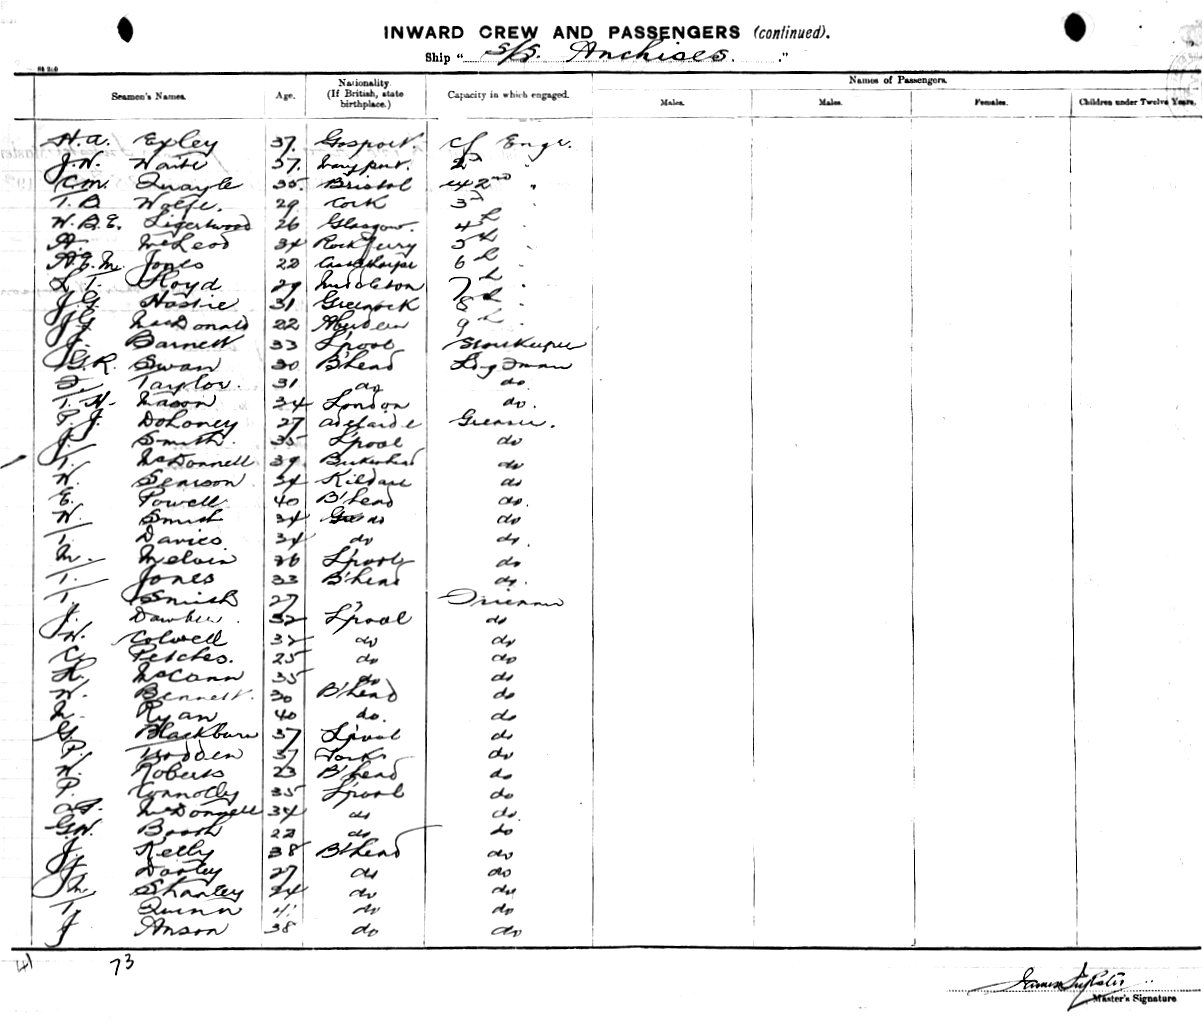 INWARD CREW AND PASSENGERS (continued).
Ship " S/S. Anchises. "
Names of Passengers.
Seamen's Names. Age. Nationality (If British, state birthplace.) Capacity in which engaged. Males. Males. Females. Children under Twelve Years.
H. A. Exley 37. Gosport. Cf Engr.
J. W. Waite 37. Maryport. 2nd "
C. M. Quayle 35. Bristol 2nd "
T. B. Wolfe. 29 Cork 3rd "
W. B. E. Ligertwood 26 Glasgow. 4th "
A. McLeod 34 Rock Ferry 5th "
A. E. M. Jones 22 6th "
L. T. Lloyd 29 Middleton 7th "
J. G. Hastie 31 Greenock 8th "
J. G. MacDonald 22 Aberdeen 9th "
J. Barnett 33 L'pool Storekeeper
G. R. Swan 30 B'head
F. Taylor. 31 do do.
T. H. Mason 34 London do.
P. J. Dohoney 27 Adelaide Greaser.
J. Smith. 35 L'pool do
T. McDonnell 39 Birkenhead do
W. 34 Kildare do
E. Powell 40 B'head do.
W. Smith 34 do do
T. Davies 34 do do.
M. Melvin 26 L'pool do
T. Jones 33 B'head do.
T. Smith 27 " Fireman
J. Dawber. 32 L'pool do
W. Colwell 32 do do
C. Petches. 25 do do
H. McCann 35 do do
W. Bennett. 30 B'head do
M. Ryan 40 do. do
G. Blackburn 37 L'pool do
P. Trodden 37 York do
W. Roberts 23 B'head do
P. Connolly 35 L'pool do
McDonnell 34 do do.
G. W. Booth 22 do do
J. Kelly 38 B'head do
J. Dooley 27 do do
J. Shanley 24 do do
T. Quinn 41 do do
J Anson 38 do do
41 73
Master's Signature